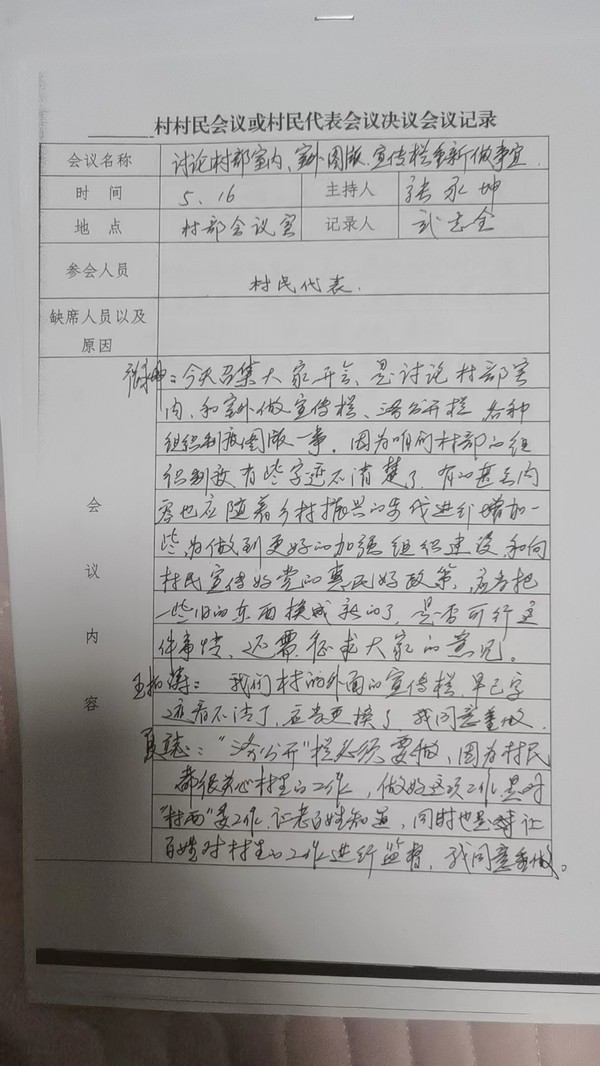 村村民会议或村民代表会议决议会议记录
会议名称 讨论村部室内、室外图版、宣传栏重新做事宜
时 间 5、16 主持人 张永坤
地 点 村部会议室 记录人 武志全
参会人员 村民代表.
缺席人员以及原因
会议内容
张永坤：今天召集大家开会，是讨论村部室
内、和室外做宣传栏、公开栏 各种
组织制度图版一事。因为咱们村部的组
织制度有些字迹不清楚了，有的甚至内
容也应随着乡村振兴的步伐进行增加一
些，为做到更好的加强组织建设，和向
村民宣传好党的惠民好政策，应当把
一些旧的东西换成新的了，是否可行这
件事情，还需征求大家的意见。
我们村部外面的宣传栏，早已字
迹看不清了，应当更换了，我同意重做.
公开”栏必须要做，因为村民
都很关心村里的工作，做好这项工作是对
“村两”委工作，让老百姓知道，同时也是让
百姓对村里的工作进行监督，我同意重做。